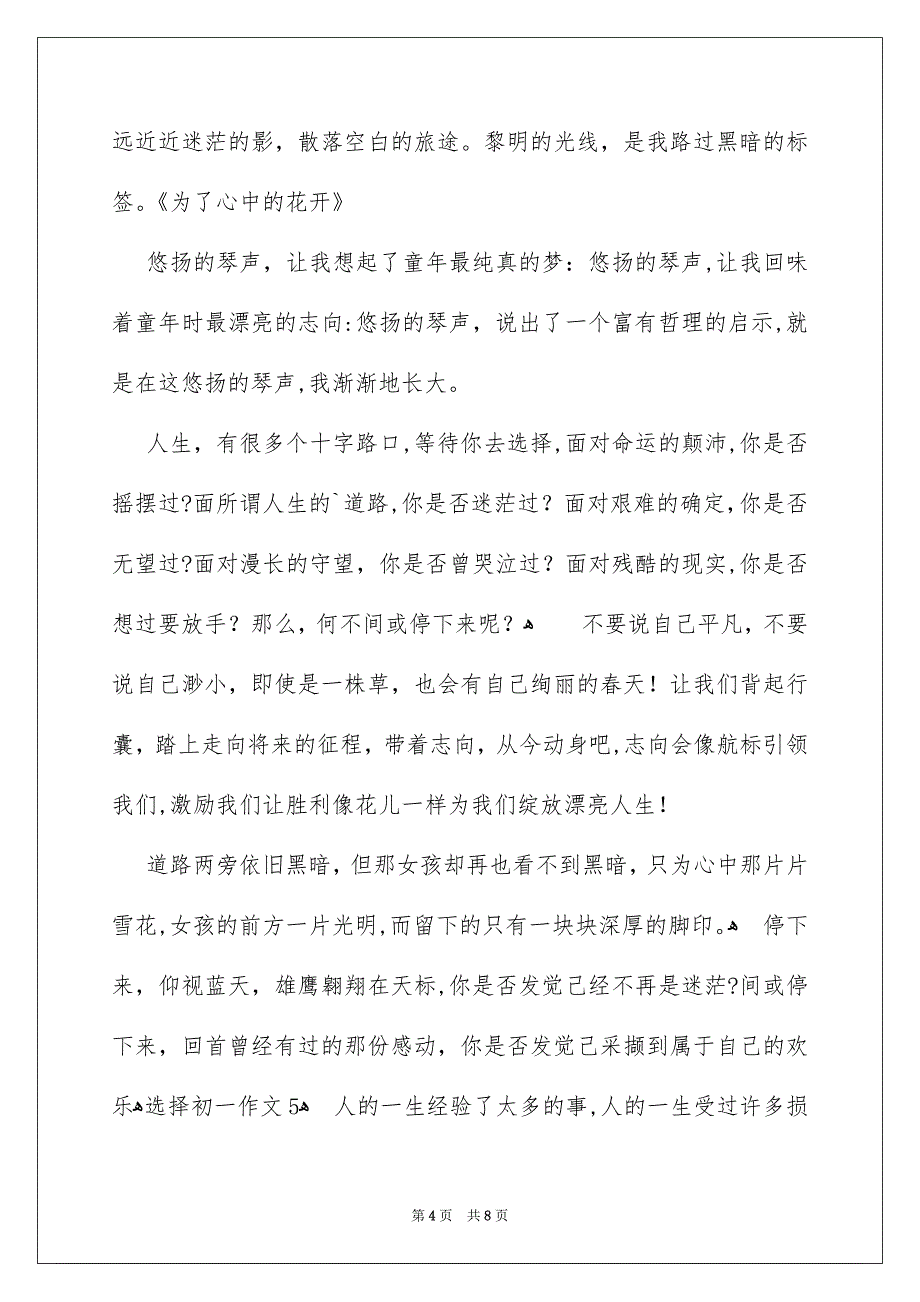 远近近迷茫的影，散落空白的旅途。黎明的光线，是我路过黑暗的标
签。《为了心中的花开》
悠扬的琴声，让我想起了童年最纯真的梦：悠扬的琴声,让我回味
着童年时最漂亮的志向:悠扬的琴声，说出了一个富有哲理的启示,就
是在这悠扬的琴声,我渐渐地长大。
人生，有很多个十字路口,等待你去选择,面对命运的颠沛,你是否
摇摆过?面所谓人生的`道路,你是否迷茫过？面对艰难的确定,你是否
无望过?面对漫长的守望，你是否曾哭泣过？面对残酷的现实,你是否
想过要放手？那么，何不间或停下来呢？ﻫ 不要说自己平凡，不要
说自己渺小，即使是一株草，也会有自己绚丽的春天！让我们背起行
囊，踏上走向将来的征程，带着志向，从今动身吧,志向会像航标引领
我们,激励我们让胜利像花儿一样为我们绽放漂亮人生！
道路两旁依旧黑暗，但那女孩却再也看不到黑暗，只为心中那片片
雪花,女孩的前方一片光明,而留下的只有一块块深厚的脚印。ﻫ 停下
来，仰视蓝天，雄鹰翱翔在天标,你是否发觉己经不再是迷茫?间或停
下来，回首曾经有过的那份感动，你是否发觉己采撷到属于自己的欢
乐ﻫ选择初一作文5ﻫ 人的一生经验了太多的事,人的一生受过许多损
第4页 共8页